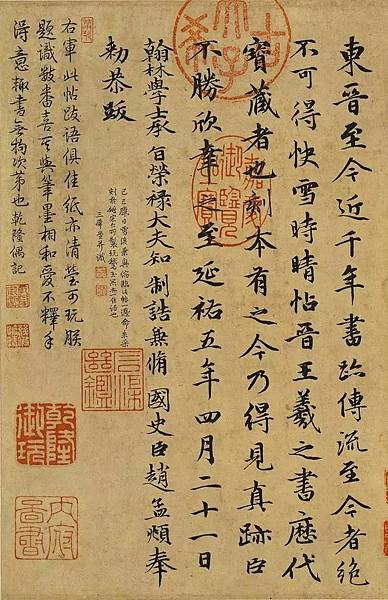 東晉至今近千年書跡傳流至今者絕
不可得快雪時晴帖晉王羲之書歷代
寶藏者也刻本有之今乃得見真跡臣
不勝欣幸之至延祐五年四月二十一日
翰林學士承旨榮祿大夫知制誥兼脩國史臣趙孟頫奉
勑恭跋
己巳臘日雪後
三希堂并識
右軍此帖跋語俱佳紙亦清瑩可玩朕
題識數番喜其與筆墨相和愛不釋手
得意輒書無拘次第也乾隆偶記
古希天子
嘉慶御覽之寶
乾隆御玩